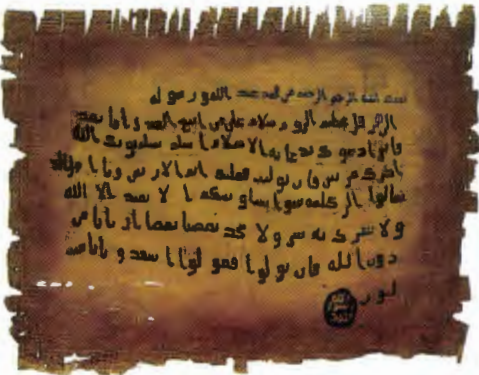 بسم الله الرحمن الرحيم من محمد عبد الله ورسوله
الى هرقل عظيم الروم سلام على من اتبع الهدى اما بعد
فانى ادعوك بدعاية الاسلام اسلم تسلم يوتك الله
اجرك مرتين فان توليت فعليك اثم الاريسين ويا
تعالوا الى كلمة سوا بيننا وبينكم الا نعبد الا الله
ولا نشرك به شيا ولا يتخذ بعضنا بعضا اربابا من
دون الله فان تولوا فقولوا اشهدوا بانا مس
لمون
الله
رسول
محمد